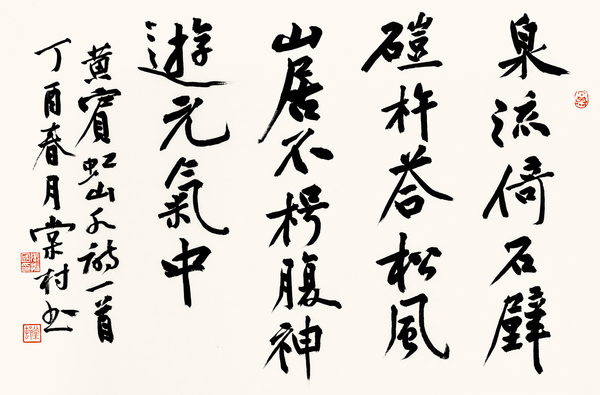 泉流倚石壁
磑杵荅松風
山居不枵腹神
遊元氣中
黃賓虹山水詩一首
丁酉春月棠村书